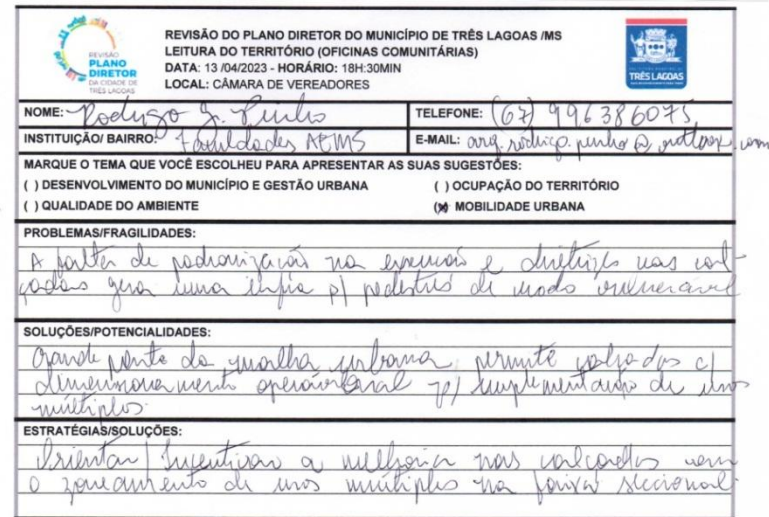 REVISÃO
PLANO
DIRETOR
DA CIDADE DE
TRÊS LAGOAS
REVISÃO DO PLANO DIRETOR DO MUNICÍPIO DE TRÊS LAGOAS /MS
LEITURA DO TERRITÓRIO (OFICINAS COMUNITÁRIAS)
DATA: 13 /04/2023 - HORÁRIO: 18H:30MIN
LOCAL: CÂMARA DE VEREADORES
TRÊS LAGOAS
NOME: Rodrigo J. Pinho
TELEFONE: (67) 996386075
INSTITUIÇÃO/ BAIRRO: Faculdades AEMS
E-MAIL: arq.rodrigo.pinho@
MARQUE O TEMA QUE VOCÊ ESCOLHEU PARA APRESENTAR AS SUAS SUGESTÕES:
( ) DESENVOLVIMENTO DO MUNICÍPIO E GESTÃO URBANA
( ) OCUPAÇÃO DO TERRITÓRIO
( ) QUALIDADE DO AMBIENTE
(x) MOBILIDADE URBANA
PROBLEMAS/FRAGILIDADES:
A falta de padronização na e diretrizes nas cal-
çadas gera uma p/ pedestres de modo vulnerável
SOLUÇÕES/POTENCIALIDADES:
Grande parte da malha urbana permite calçadas c/
dimensionamento operacional p/ implementação de usos
múltiplos.
ESTRATÉGIAS/SOLUÇÕES:
Orientar/Incentivar a melhoria nas calçadas com
o zoneamento de usos múltiplos na faixa seccional.